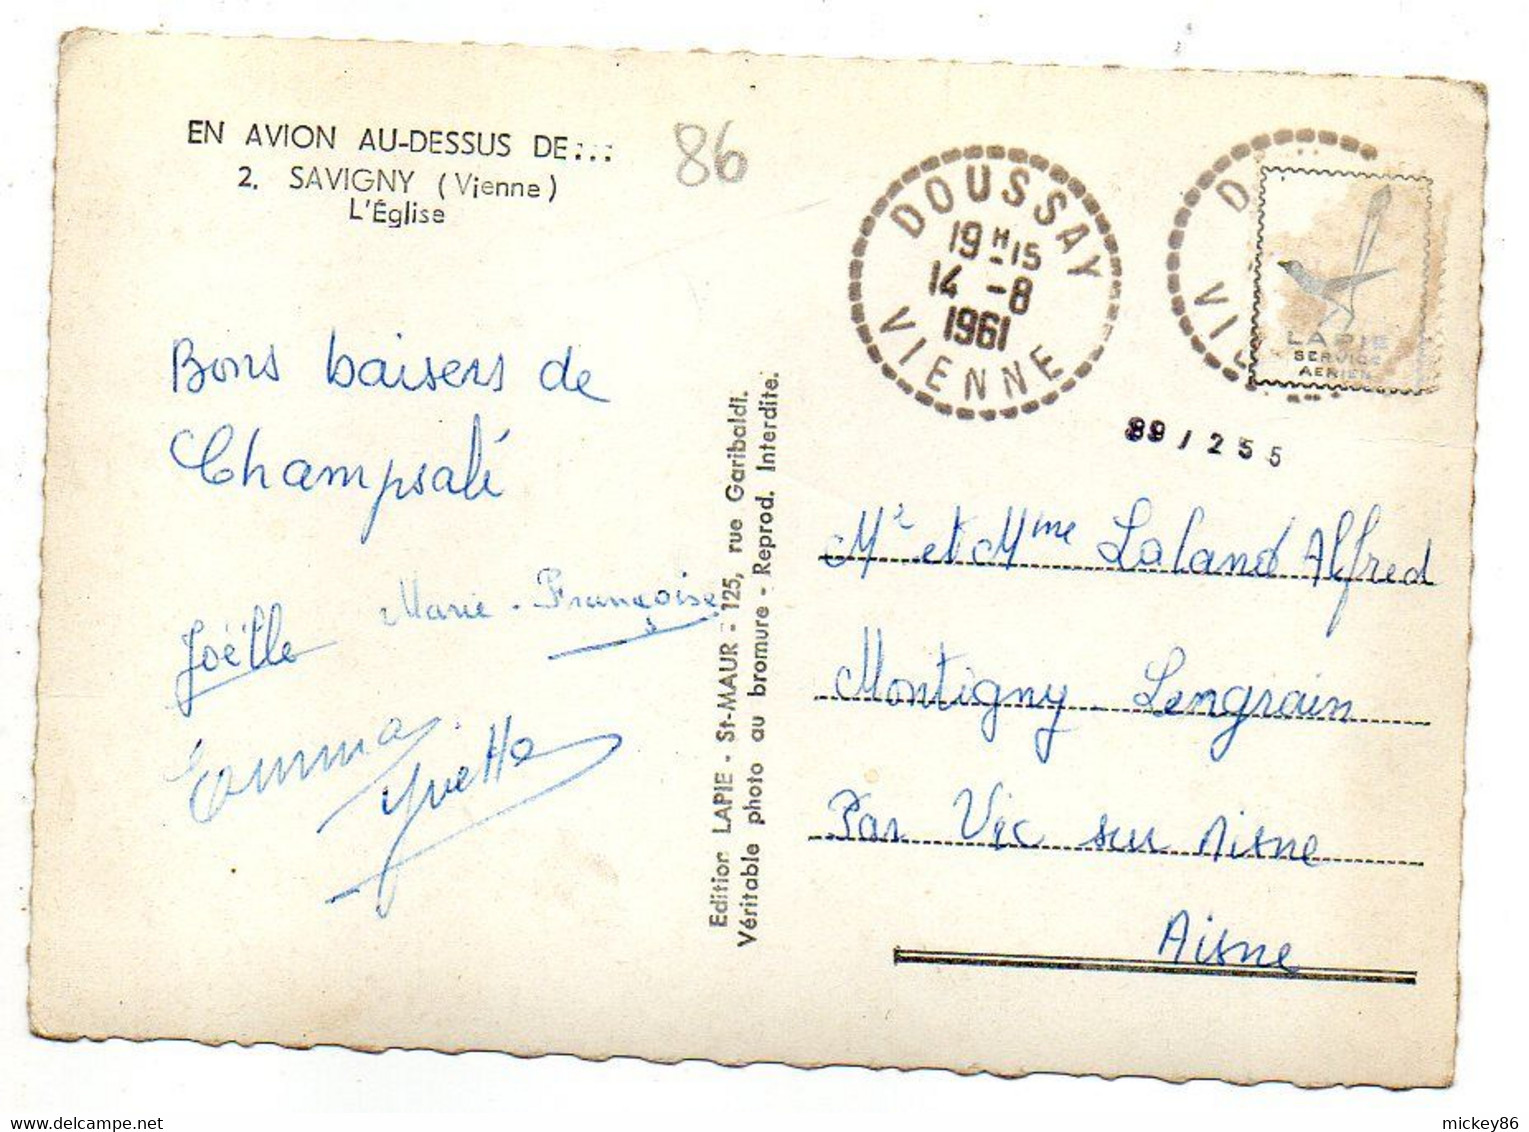 EN AVION AU-DESSUS DE...
2. SAVIGNY (Vienne)
L'Église
86
Bons baisers de
Champsalé
Joëlle Marie-Françoise
Emma
Yvette
Edition LAPIE - St-MAUR - 125, rue Garibaldi.
Véritable photo au bromure - Reprod. Interdite.
DOUSSAY
19H15
14-8
1961
VIENNE
D
VIE
LAPIE
SERVICE
AERIEN
89/255
Mr et Mme Laland Alfred
Montigny-Lengrain
Par Vic sur Aisne
Aisne
mickey86